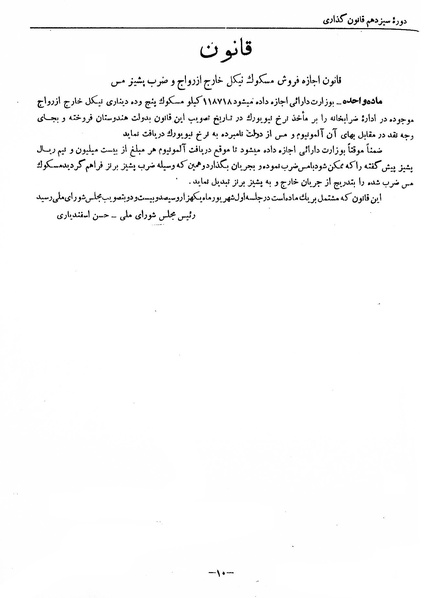 دورهٔ سیزدهم قانون گذاری
قانون
قانون اجازه فروش مسکوك نیکل خارج از رواج و ضرب پشیز مس
مادهٔ واحده ــ بوزارت دارائی اجازه داده میشود ۱۱۸۷۱۸ کیلو مسکوك پنج وده دیناری نیکل خارج ازرواج
موجوده در ادارهٔ ضرابخانه را بر مأخذ نرخ نیویورك در تاریخ تصویب این قانون بدولت هندوستان فروخته و بجای
وجه نقد در مقابل بهای آن آلمونیوم و مس از دولت نامبرده به نرخ نیویورك دریافت نماید
ضمناً موقتاً بوزارت دارائی اجازه داده میشود تا موقع دریافت آلمونیوم هر مبلغ از بیست میلیون و نیم ریال
پشیز پیش گفته را که ممکن شود بامس ضرب نموده و بجریان بگذارد و همین که وسیله ضرب پشیز برنز فراهم گردید مسکوك
مس ضرب شده را بتدریج از جریان خارج و به پشیز برنز تبدیل نماید .
این قانون که مشتمل بر یك ماده است در جلسه اول شهریور ماه یکهزار و سیصد و بیست و دو بتصویب مجلس شورای ملی رسید
رئیس مجلس شورای ملی ــ حسن اسفندیاری
–۱۰–